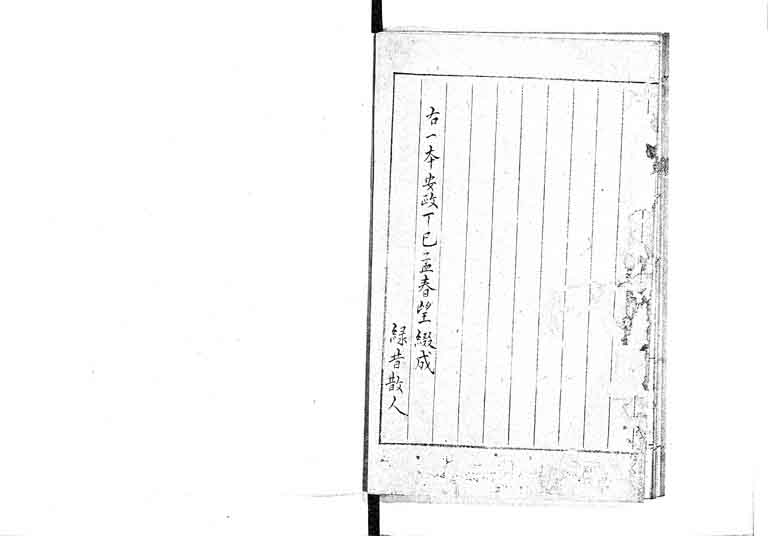 右一本安政丁巳孟春望綴成
緑昔散人